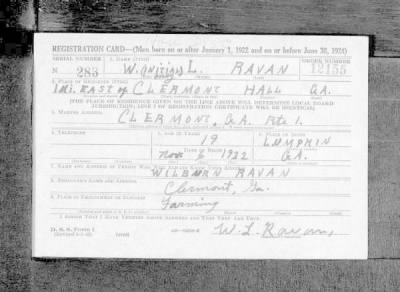 REGISTRATION CARD—(Men born on or after January 1, 1922 and on or before June 30, 1924)
SERIAL NUMBER 1. NAME (Print) ORDER NUMBER
N 283 W. (Initials) L. RAVAN 12455
2. PLACE OF RESIDENCE (Print)
1 Mi. EAST of CLERMONT HALL GA.
[THE PLACE OF RESIDENCE GIVEN ON THE LINE ABOVE WILL DETERMINE LOCAL BOARD
JURISDICTION; LINE 2 OF REGISTRATION CERTIFICATE WILL BE IDENTICAL]
3. MAILING ADDRESS
CLERMONT, GA. Rte 1.
4. TELEPHONE 5. AGE IN YEARS 6. PLACE OF BIRTH
19 LUMPKIN
DATE OF BIRTH
Nov 6 1922 GA.
7. NAME AND ADDRESS OF PERSON WHO WILL ALWAYS KNOW YOUR ADDRESS
WILBURN RAVAN
8. EMPLOYER'S NAME AND ADDRESS
Clermont, Ga.
9. PLACE OF EMPLOYMENT OR BUSINESS
Farming
I AFFIRM THAT I HAVE VERIFIED ABOVE ANSWERS AND THAT THEY ARE TRUE.
D. S. S. Form 1
W. L. Ravan